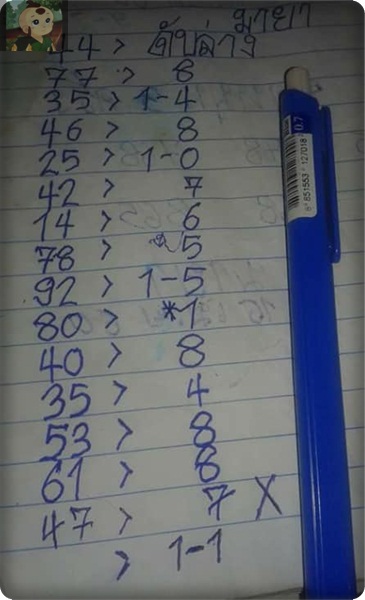 มายา
44 > จับล่าง
77 > 8
35 > 1-4
46 > 8
25 > 1-0
42 > 7
14 > 6
78 > 5
92 > 1-5
80 > *1
40 > 8
35 > 4
53 > 8
61 > 8
47 > 7 X
> 1-1
0.7
8 851553 127018